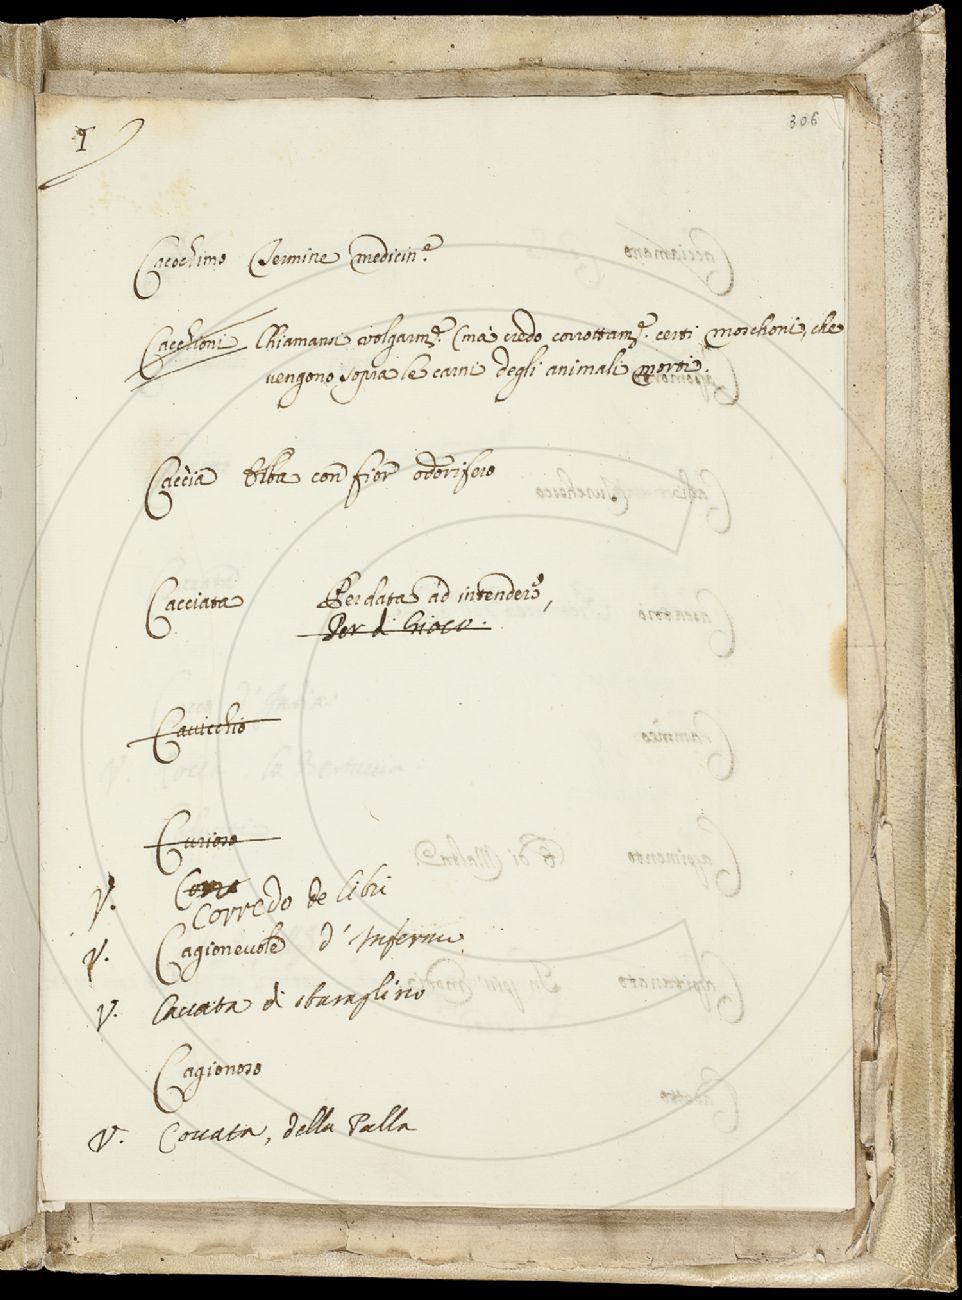 306
1
Cacochimo Termine medicin.e
Cacchioni Chiamansi volgarm.e (mà credo corrottam.e certi moschoni, che
vengono sopra le carni degli animali morti.
Caccia Erba con fior odorifero
Cacciata Per data ad intender,
Per di Gioco.
Cavicchio
Curioso
V. Corredo de libri
V. Cagionevole d'Infermi
V. Cavata di sbaraglino
Cagionoso
V. Covata, della Palla